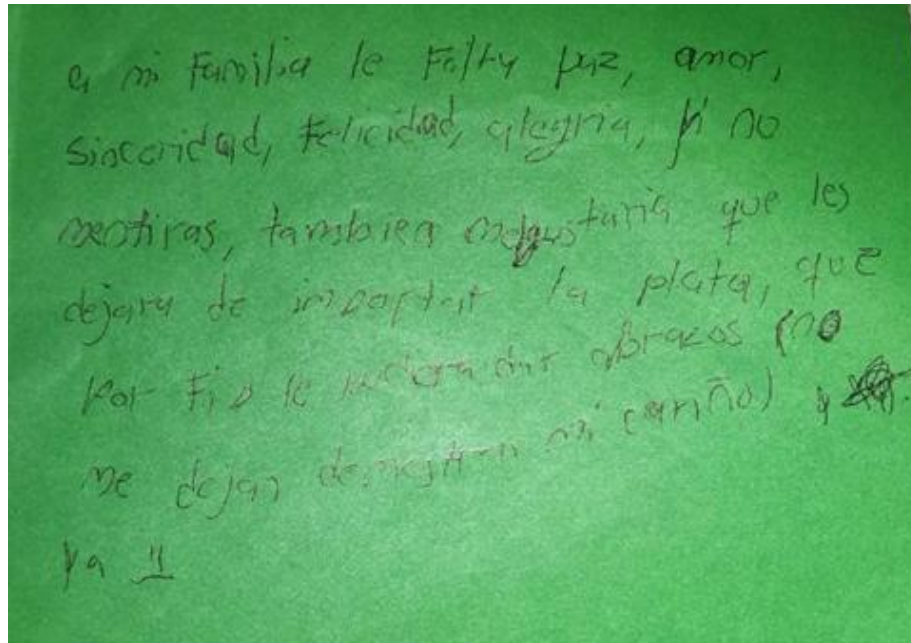 a mi Familia le Falta paz, amor,
sinceridad, Felicidad, alegria, y no
mentiras, tambien me gustaria que les
dejara de importar la plata, que
por Fin le pudiera dar abrazos (no
me dejan demostrar mi cariño) y
ya